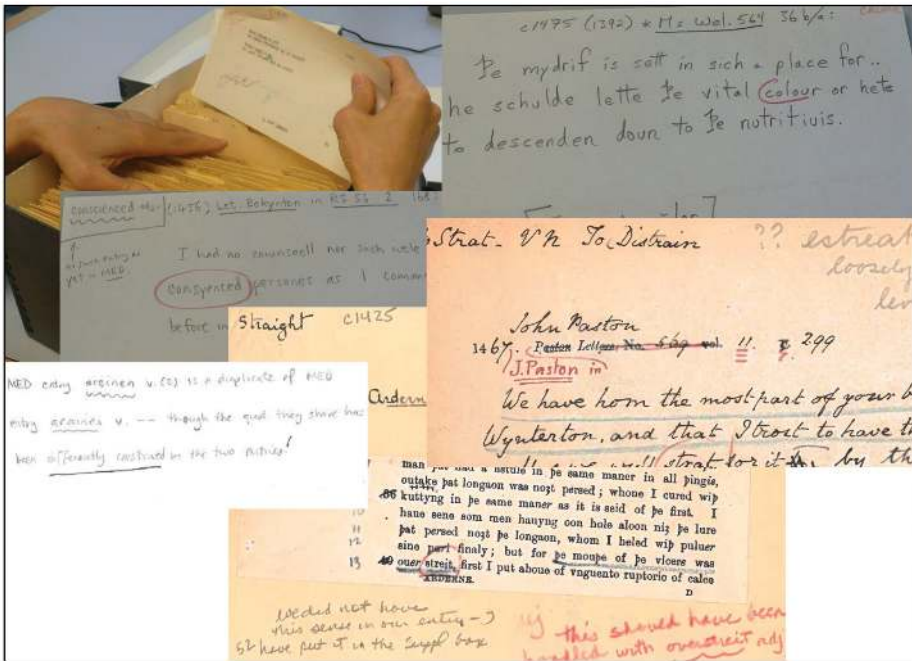 c1475 (1392) * Ms Wel. 564 36 b/a:
Þe mydrif is sett in sich a place for..
he schulde lette Þe vital colour or hete
to descenden doun to Þe nutritiuis.
conscienced
(1456) Let. Bekynton in RS 56. 2
no such entry as
yet in MED.
I had no counseill nor such wele
consyenced persones as I
before in
Strat - V N To Distrain
?? estreat
loosely
John Paston
1467. Paston Letters, No. 569 vol. II. 299
J. Paston in
We have hom the most part of your b
Wynterton, and that I trost to have th
strat for it by th
Straight c1425
Ardern
MED entry v. (2) is a duplicate of MED
entry v. -- though the quot they share has
been differently construed in the two entries!
man þat had a fistule in þe same maner in all þingis,
outake þat longaon was noȝt persed; whone I cured wiþ
36 kuttyng in þe same maner as it is seid of þe first. I
haue sene som men hauyng oon hole aloon niȝ þe lure
11 þat persed noȝt þe longaon, whom I heled wiþ puluer
12 sine pari finaly; but for þe mouþe of þe vlcere was
13 40 ouer streit, first I put aboue of vnguento ruptorio of calce
ARDERNE.
D
we did not have
this sense in our entry -
have put it in the suppl box
this should have been
handled with overstreit adj